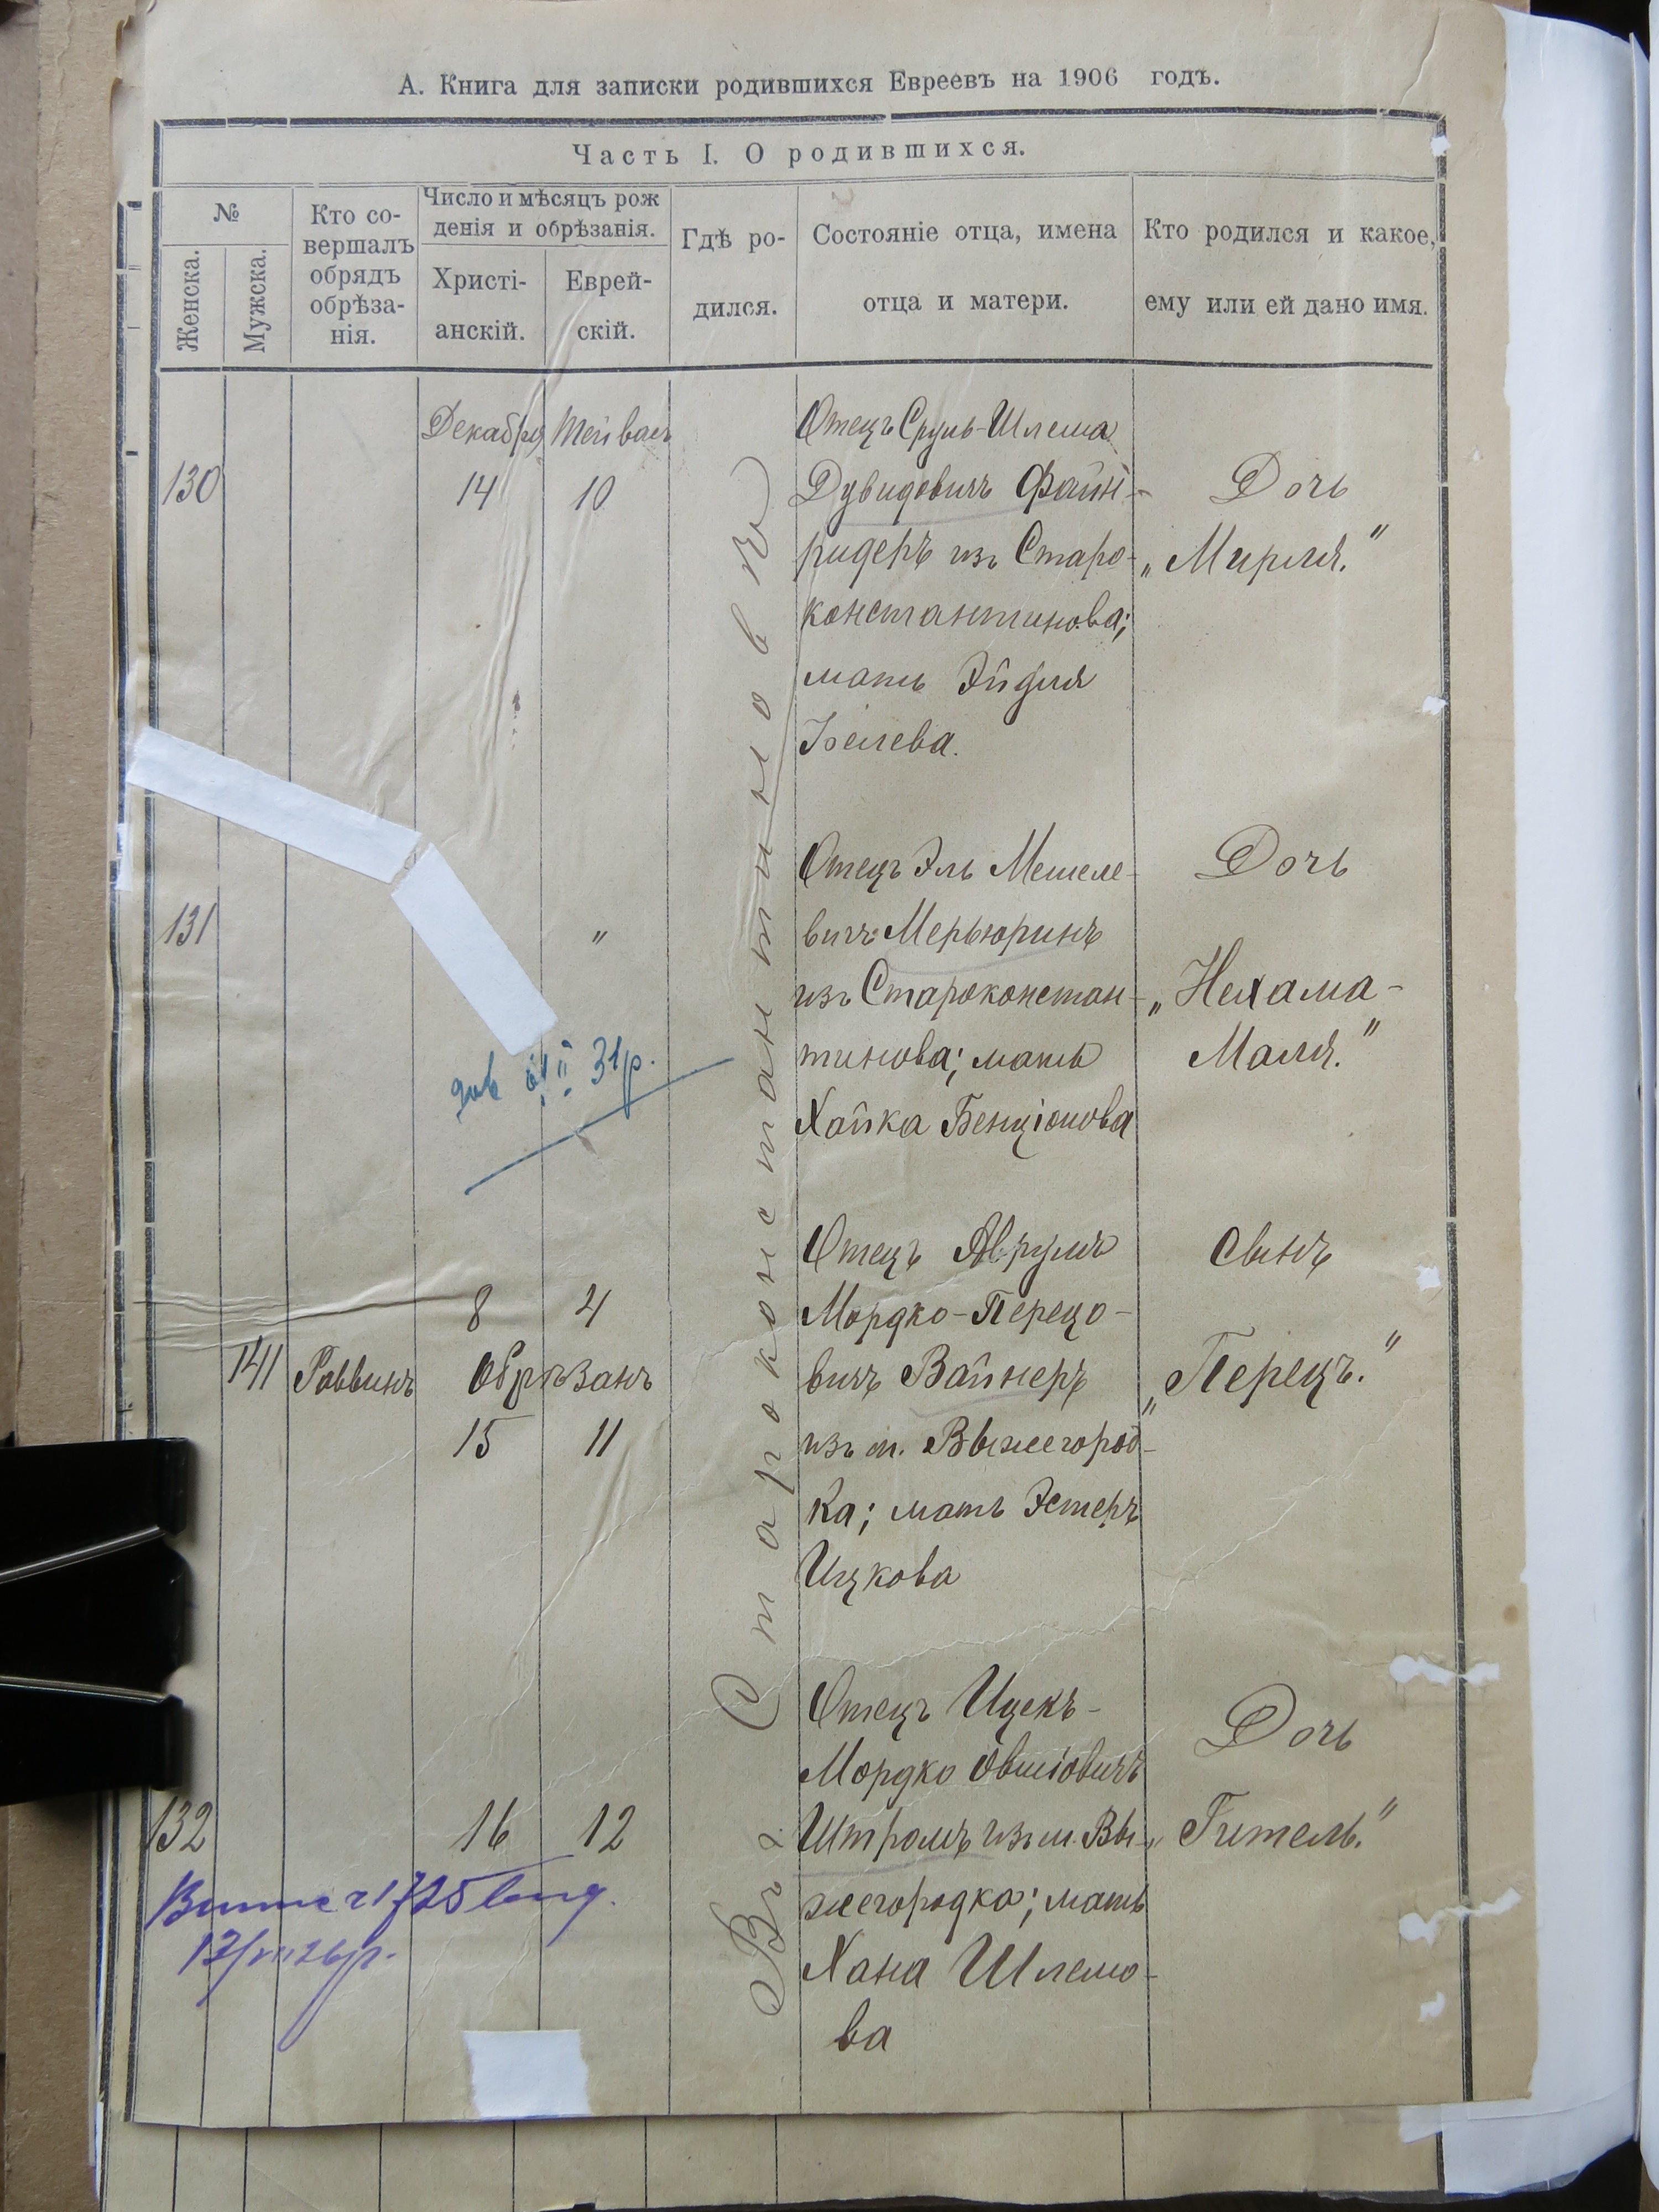 А. Книга для записки родившихся Евреевъ на 1906 годъ.
Часть I. О родившихся.
№
Женска.
Мужска.
Кто со-
вершалъ
обрядъ
обрѣза-
нія.
Число и мѣсяцъ рож
денія и обрѣзанія.
Христі-
анскій.
Еврей-
скій.
Гдѣ ро-
дился.
Состояніе отца, имена
отца и матери.
Кто родился и какое,
ему или ей дано имя.
Въ г. Староконстантиновѣ
130
Декабря
14
Тейвасъ
10
Отецъ Сруль-Шлема
Дувидовичъ Файн-
ридеръ изъ Старо-
константинова;
мать Эйдля
Іселева.
Дочь
„Мирля."
131
"
Отецъ Эль Мешеле-
вичъ Мерьюринъ
изъ Староконстан-
тинова; мать
Хайка Бенціонова
Дочь
„Нехама-
Маля."
31р.
141
Раввинъ
8 4
Обрѣзанъ
15 11
Отецъ Аврумъ
Мордко-Перецо-
вичъ Вайнеръ
изъ м. Выжегород-
ка; мать Эстеръ
Ицкова
Сынъ
„Перецъ."
132
16 12
Отецъ Ицекъ-
Мордко Овшіовичъ
Штромъ изъ м. Вы-
жегородка; мать
Хана Шлемо-
ва
Дочь
„Гитель."